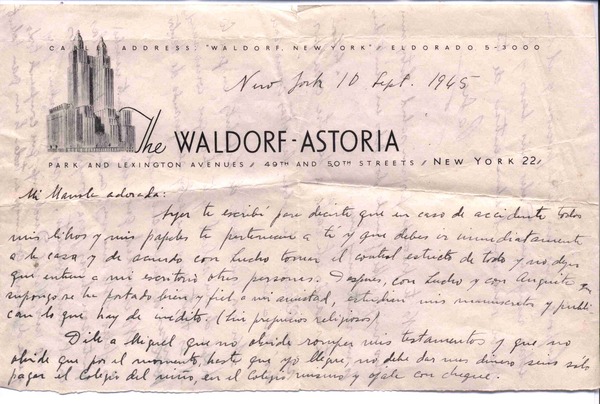 CA ADDRESS "WALDORF, NEW YORK" / ELDORADO 5-3000
New York 10 Sept. 1945
The WALDORF-ASTORIA
PARK AND LEXINGTON AVENUES / 49TH AND 50TH STREETS / NEW YORK 22,
Mi adorada:
Ayer te escribí para decirte que en caso de accidente todos
mis libros y mis papeles te pertenecen a ti y que debes ir inmediatamente
a la casa, y de acuerdo con Lucho tomar el control estricto de todo y no dejar
que entren a mi escritorio otras personas. Después, con Lucho y con Anguita que
supongo se ha portado bien y fiel a mi amistad, estudien mis manuscritos y publi
can lo que hay de inédito. (Sin prejuicios religiosos)
Dile a Miguel que no olvide romper mis testamentos y que no
olvide que por el momento, hasta que yo llegue, no debe dar más dinero sino sólo
pagar el Colegio del niño, en el Colegio mismo y ojalá con cheque.